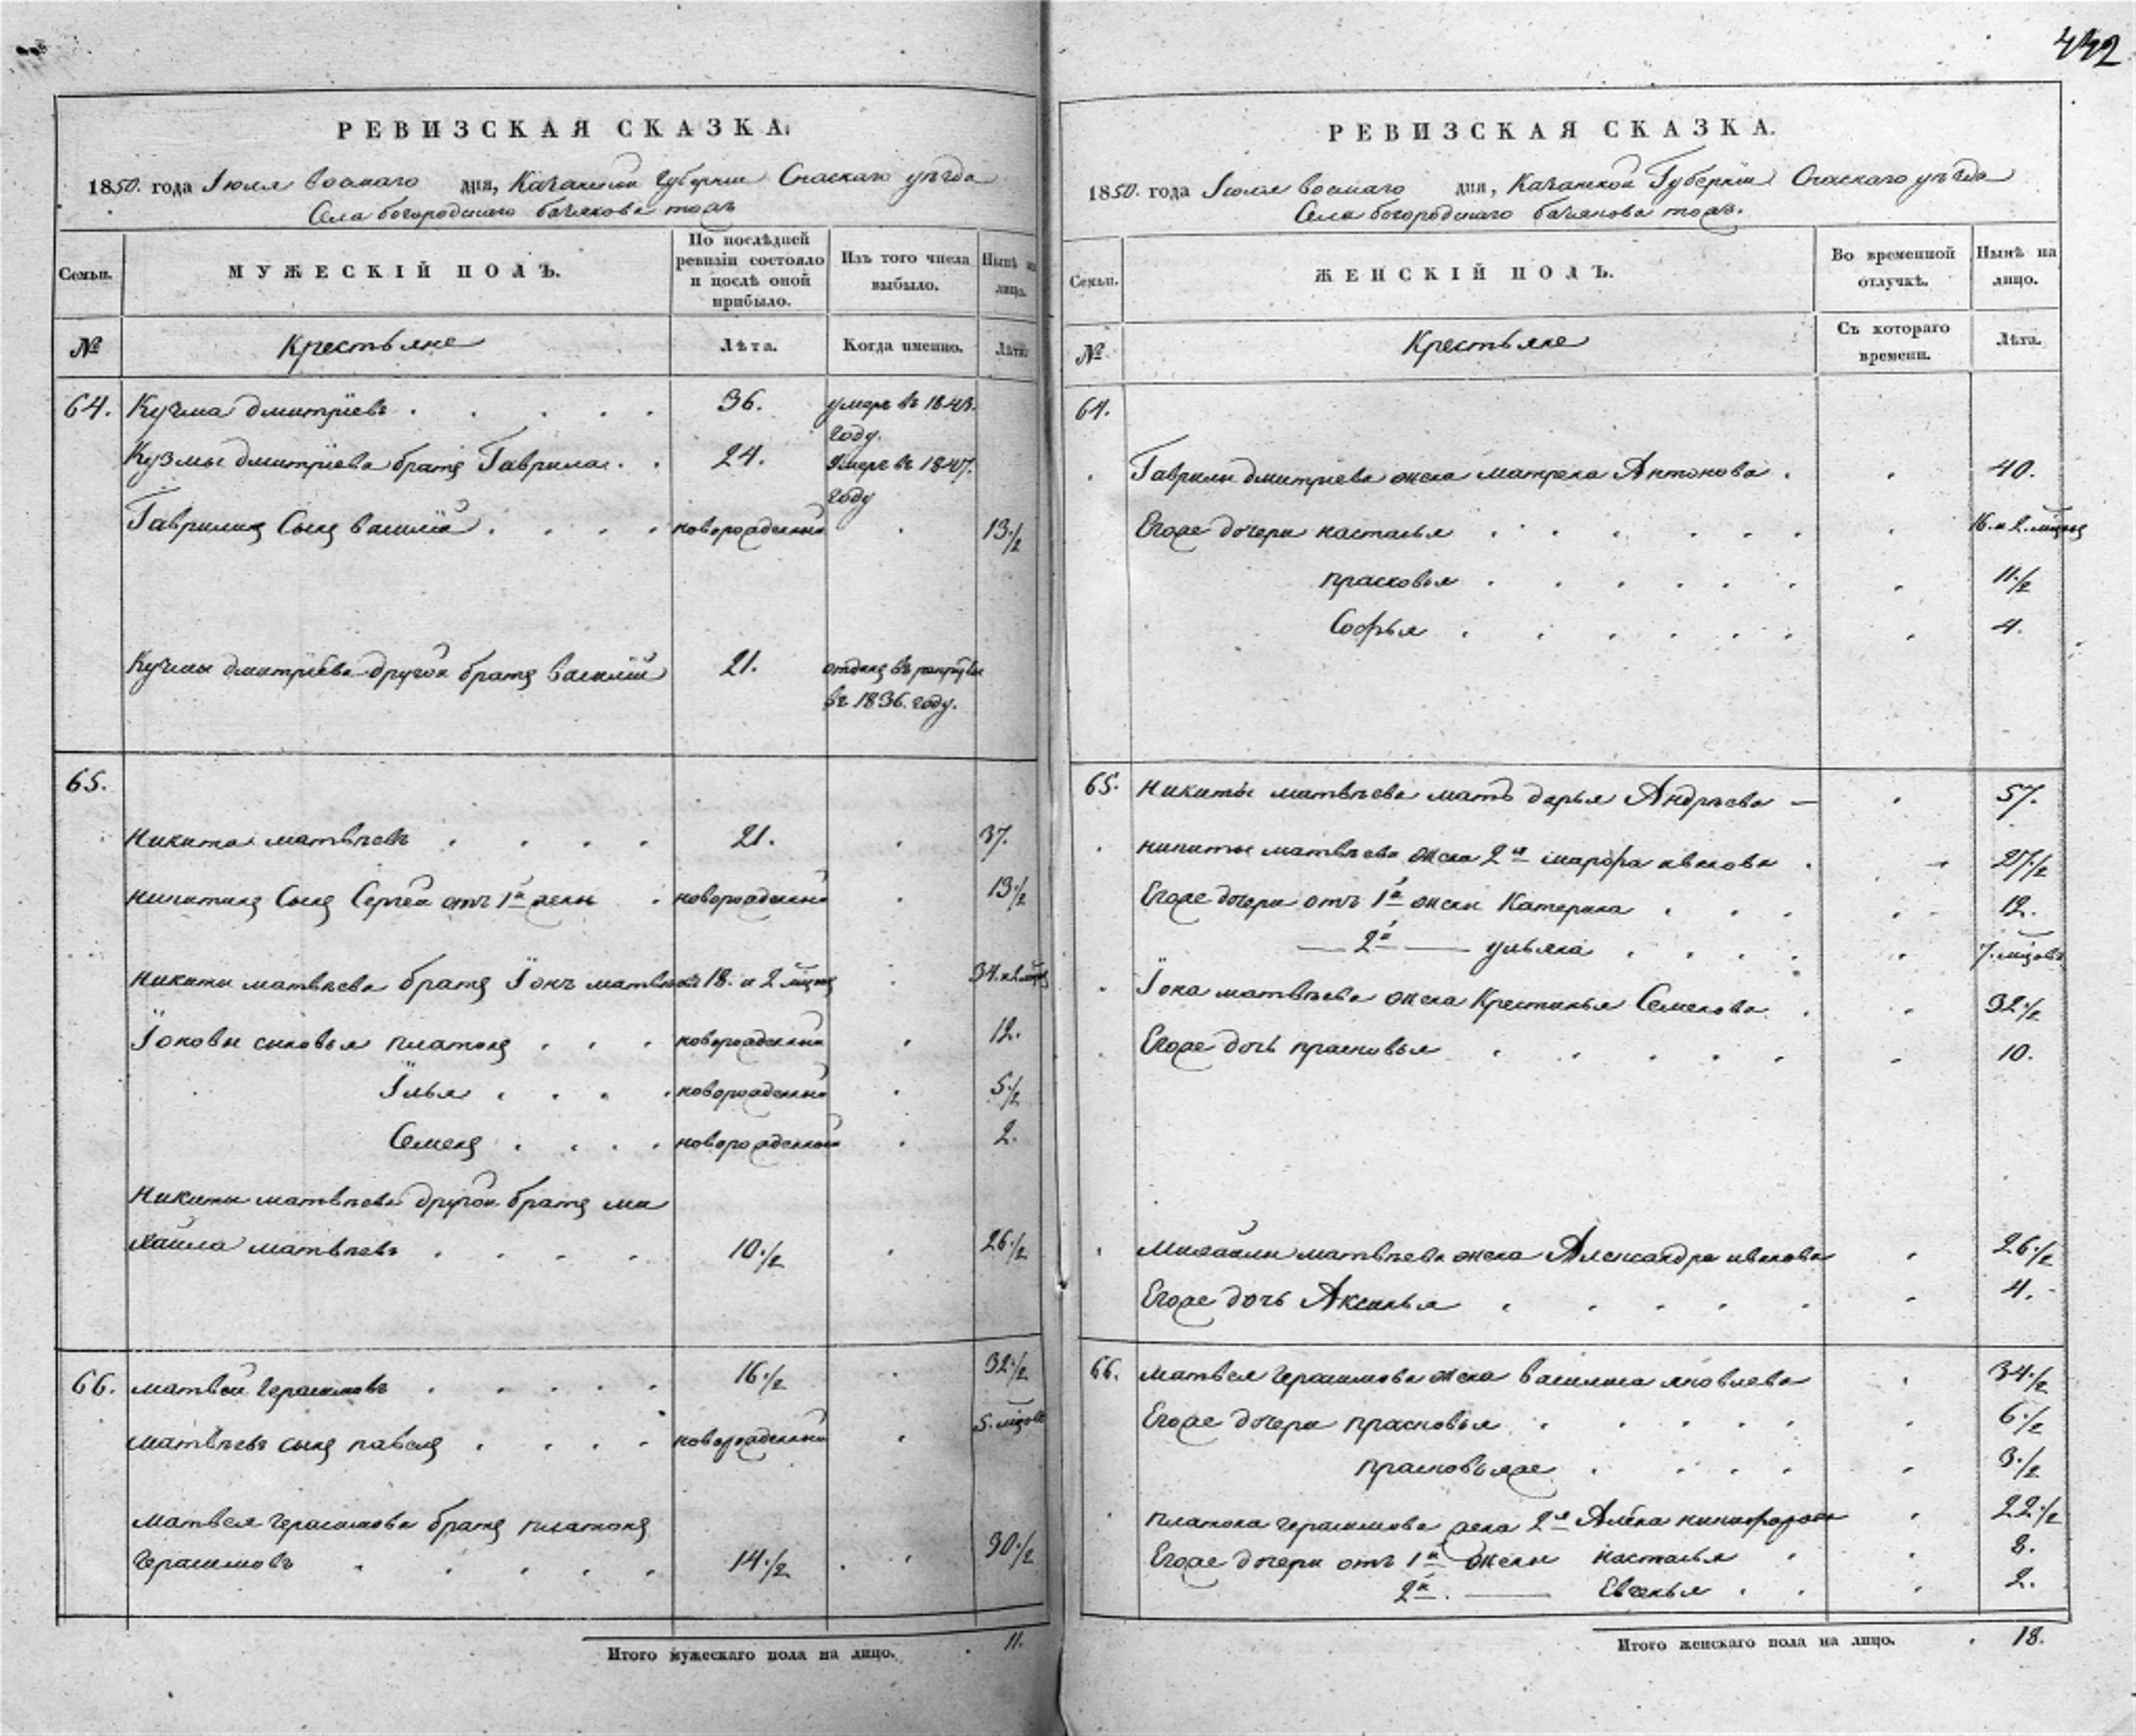 442
РЕВИЗСКАЯ СКАЗКА.
1850. года Іюля восмаго дня, Казанской Губерніи Спаскаго уѣзда
Села богородскаго
Семьи.
МУЖЕСКІЙ ПОЛЪ.
По послѣдней ревизіи состояло и послѣ оной прибыло.
Изъ того числа выбыло.
Нынѣ на лицо.
№
Крестьяне
Лѣта.
Когда именно.
Лѣта.
64. Кузма дмитріевъ . . . . . 36. умеръ въ 1843. году.
Кузмы дмитріева братъ Гаврила . . 24. Умеръ въ 1847. году
Гаврилинъ Сынъ василій . . . . новорожденный . 13 1/2
Кузмы дмитріева другой братъ василій 21. отданъ въ рекруты въ 1836. году.
65.
никита матвѣевъ . . . . 21. . 37.
никитинъ Сынъ Сергей отъ 1й жены . новорожденный . 13 1/2
никиты матвѣева братъ Іонъ матвѣевъ 18. и 2 мѣсяца . 34. и 2 мѣсяца
Іоновы сыновья платонъ . . . новорожденный . 12.
Илья . . . . новорожденный . 5 1/2
Семенъ . . . . новорожденный . 2.
никиты матвѣева другой братъ ми
хайла матвѣевъ . . . . 10 1/2 . 26 1/2
66. матвей герасимовъ . . . . . 16 1/2 . 32 1/2
матвѣевъ сынъ павелъ . . . . новорожденный . 5. мѣсяцовъ
матвея герасимова братъ платонъ
герасимовъ . . . . . 14 1/2 . 30 1/2
Итого мужескаго пола на лицо. . 11.
РЕВИЗСКАЯ СКАЗКА.
1850. года Іюля восмаго дня, Казанской Губерніи Спаскаго уѣзда
Села богородскаго
Семьи.
ЖЕНСКІЙ ПОЛЪ.
Во временной отлучкѣ.
Нынѣ на лицо.
№
Крестьяне
Съ котораго времени.
Лѣта.
64.
Гаврилы дмитриева жена матрена Антонова . . 40.
Егоже дочери настасья . . . . . . . 16. и 2. мѣсяца
прасковья . . . . . . . 11 1/2
Софья . . . . . . . 4.
65. никиты матвѣева мать дарья Андрѣева — . 57.
никиты матвѣева жена 2я марфа иванова . 27 1/2
Егоже дочери отъ 1й жены Катерина . . . . 12.
— 2й — ульяна . . . . . 7. мѣсяцовъ
Іона матвѣева жена Крестинья Семенова . . 32 1/2
Егоже дочь прасковья . . . . . . 10.
михайлы матвѣева жена Александра иванова . 26 1/2
Егоже дочь Аксинья . . . . . . 4.
66. матвея герасимова жена василиса яковлева . 34 1/2
Егоже дочери прасковья . . . . . . 6 1/2
прасковья же . . . . . 3 1/2
платона герасимова жена 2я Алена никифорова . 22 1/2
Егоже дочери отъ 1й жены настасья . . 8.
2й. — Евгенья . . . 2.
Итого женскаго пола на лицо. . 18.